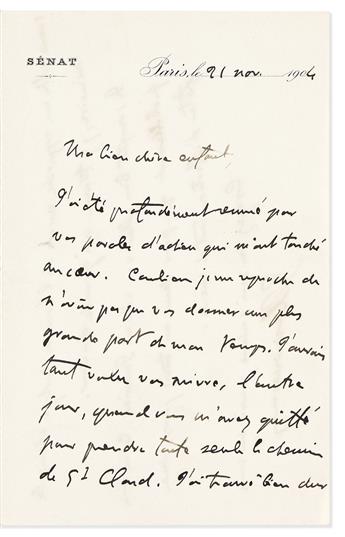 SÉNAT
Paris, le 21 nov. 1904
Ma bien chère enfant,
J'ai été profondément remué par
vos paroles d'adieu qui m'ont touché
au cœur. Combien je me reproche de
n'avoir pas pu vous donner une plus
grande part de mon temps. J'aurais
tant voulu vous suivre, l'autre
jour, quand vous m'avez quitté
pour prendre toute seule le chemin
de St Cloud. J'ai trouvé bien dur